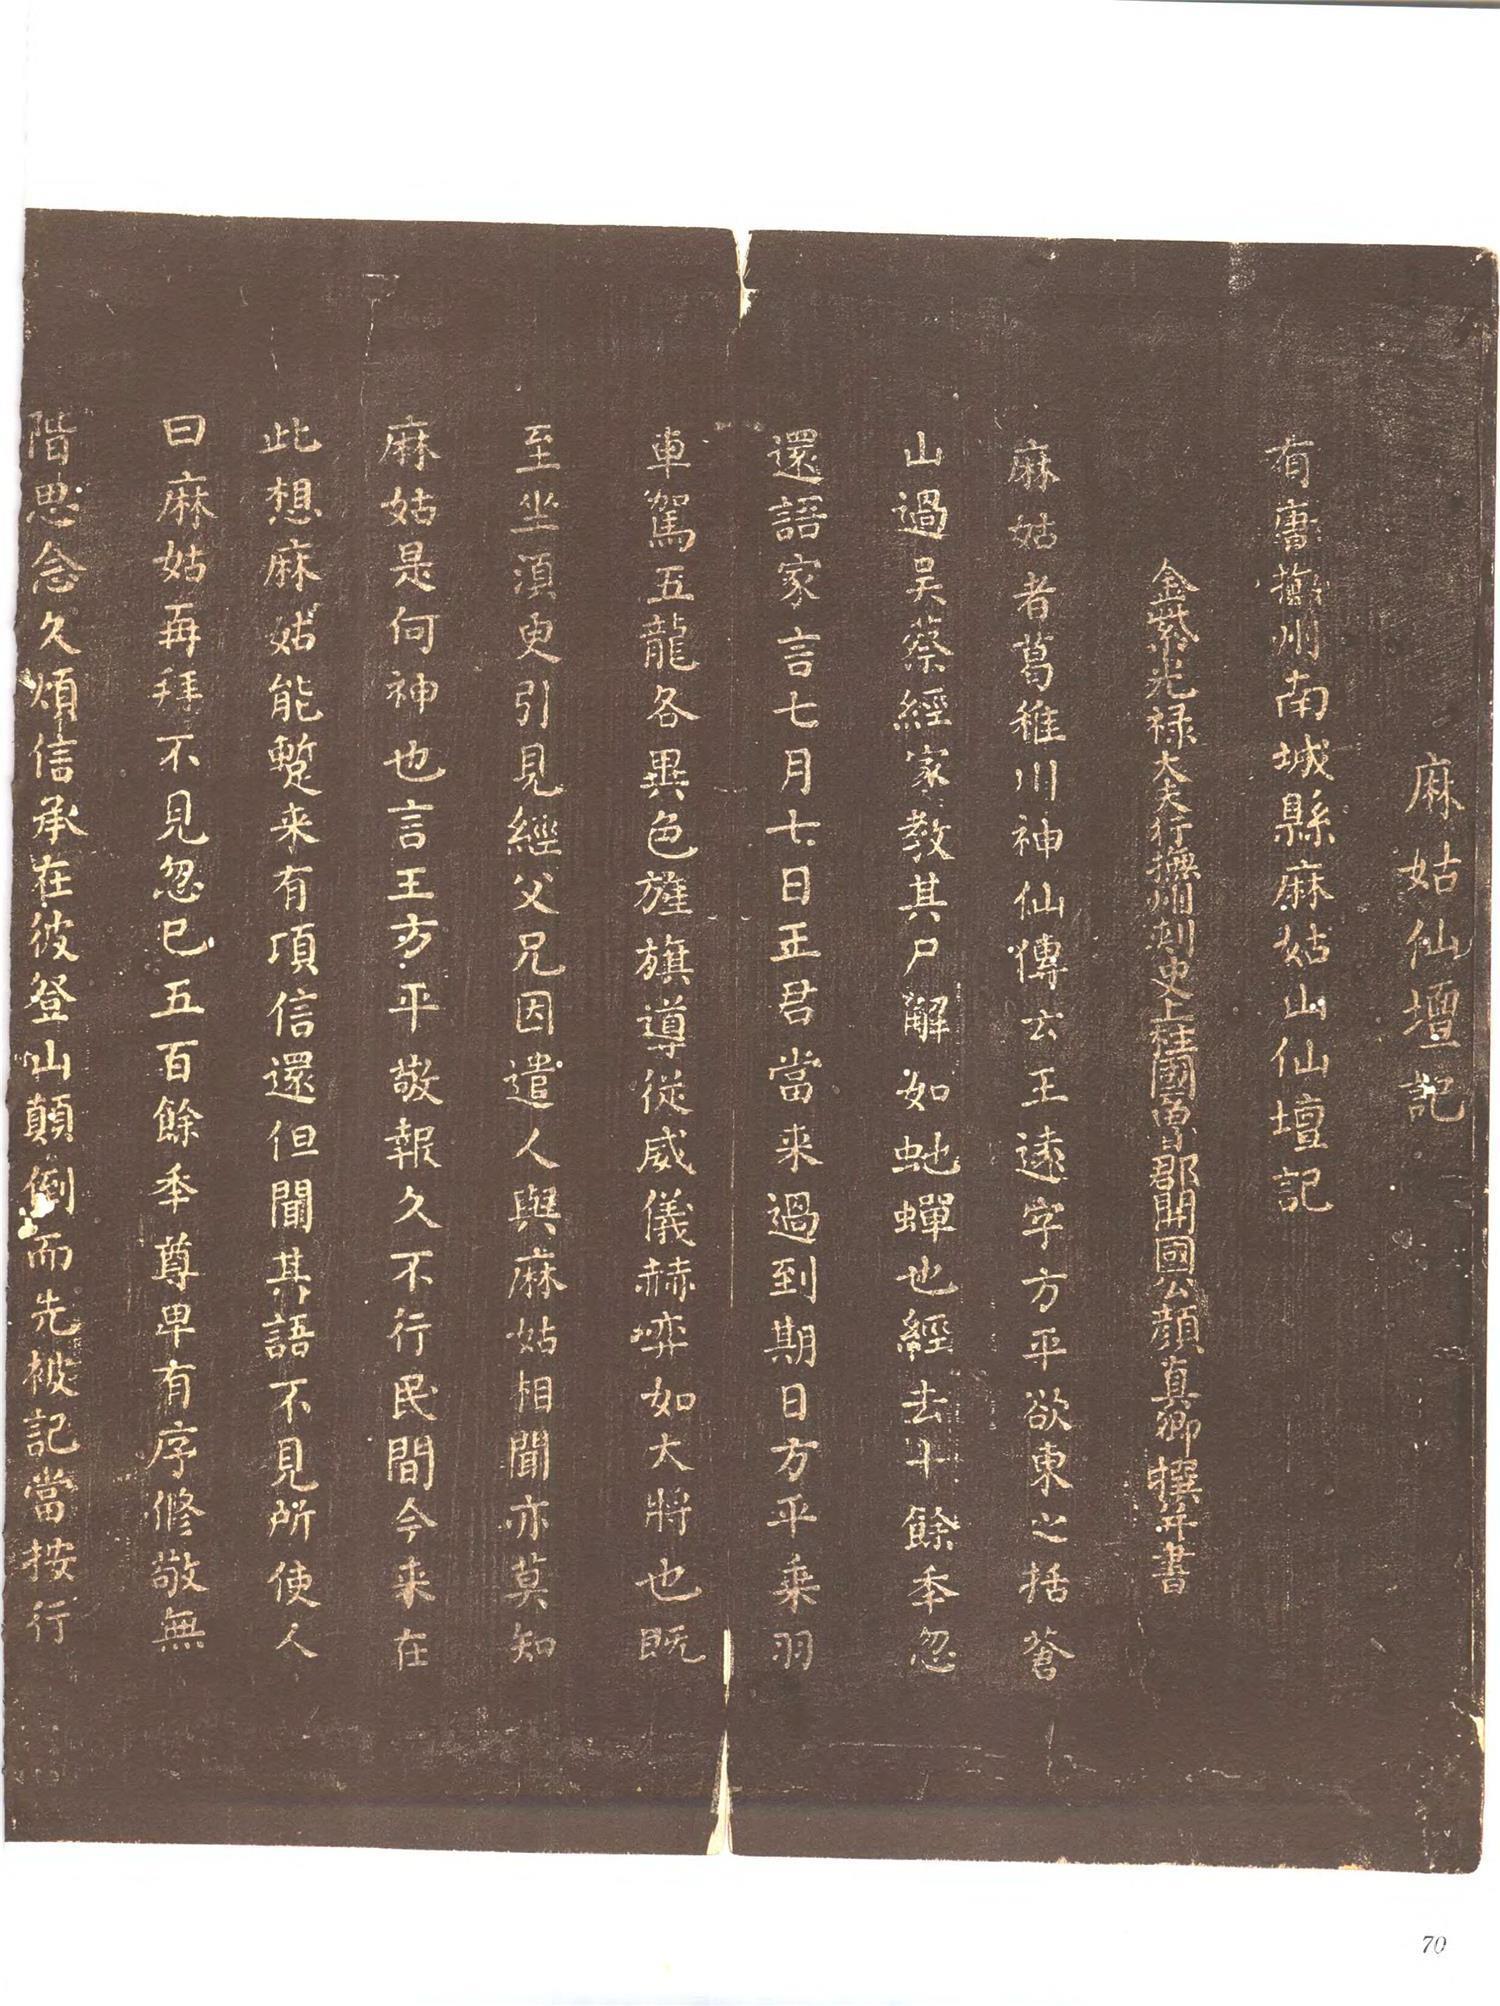 麻姑仙壇記
有唐撫州南城縣麻姑山仙壇記
金紫光禄大夫行撫州刺史上柱國魯郡開國公顔真卿撰并書
麻姑者葛稚川神仙傳云王遠字方平欲東之括蒼
山過吴蔡經家教其尸解如虵蟬也經去十餘秊忽
還語家言七月七日王君當来過到期日方平乗羽
車駕五龍各異色旌旗導從威儀赫弈如大將也既
至坐湏臾引見經父兄因遣人與麻姑相聞亦莫知
麻姑是何神也言王方平敬報久不行民間今来在
此想麻姑能蹔来有頃信還但聞其語不見所使人
曰麻姑再拜不見忽已五百餘秊尊卑有序修敬無
階思念久煩信承在彼登山顛倒而先被記當按行
70